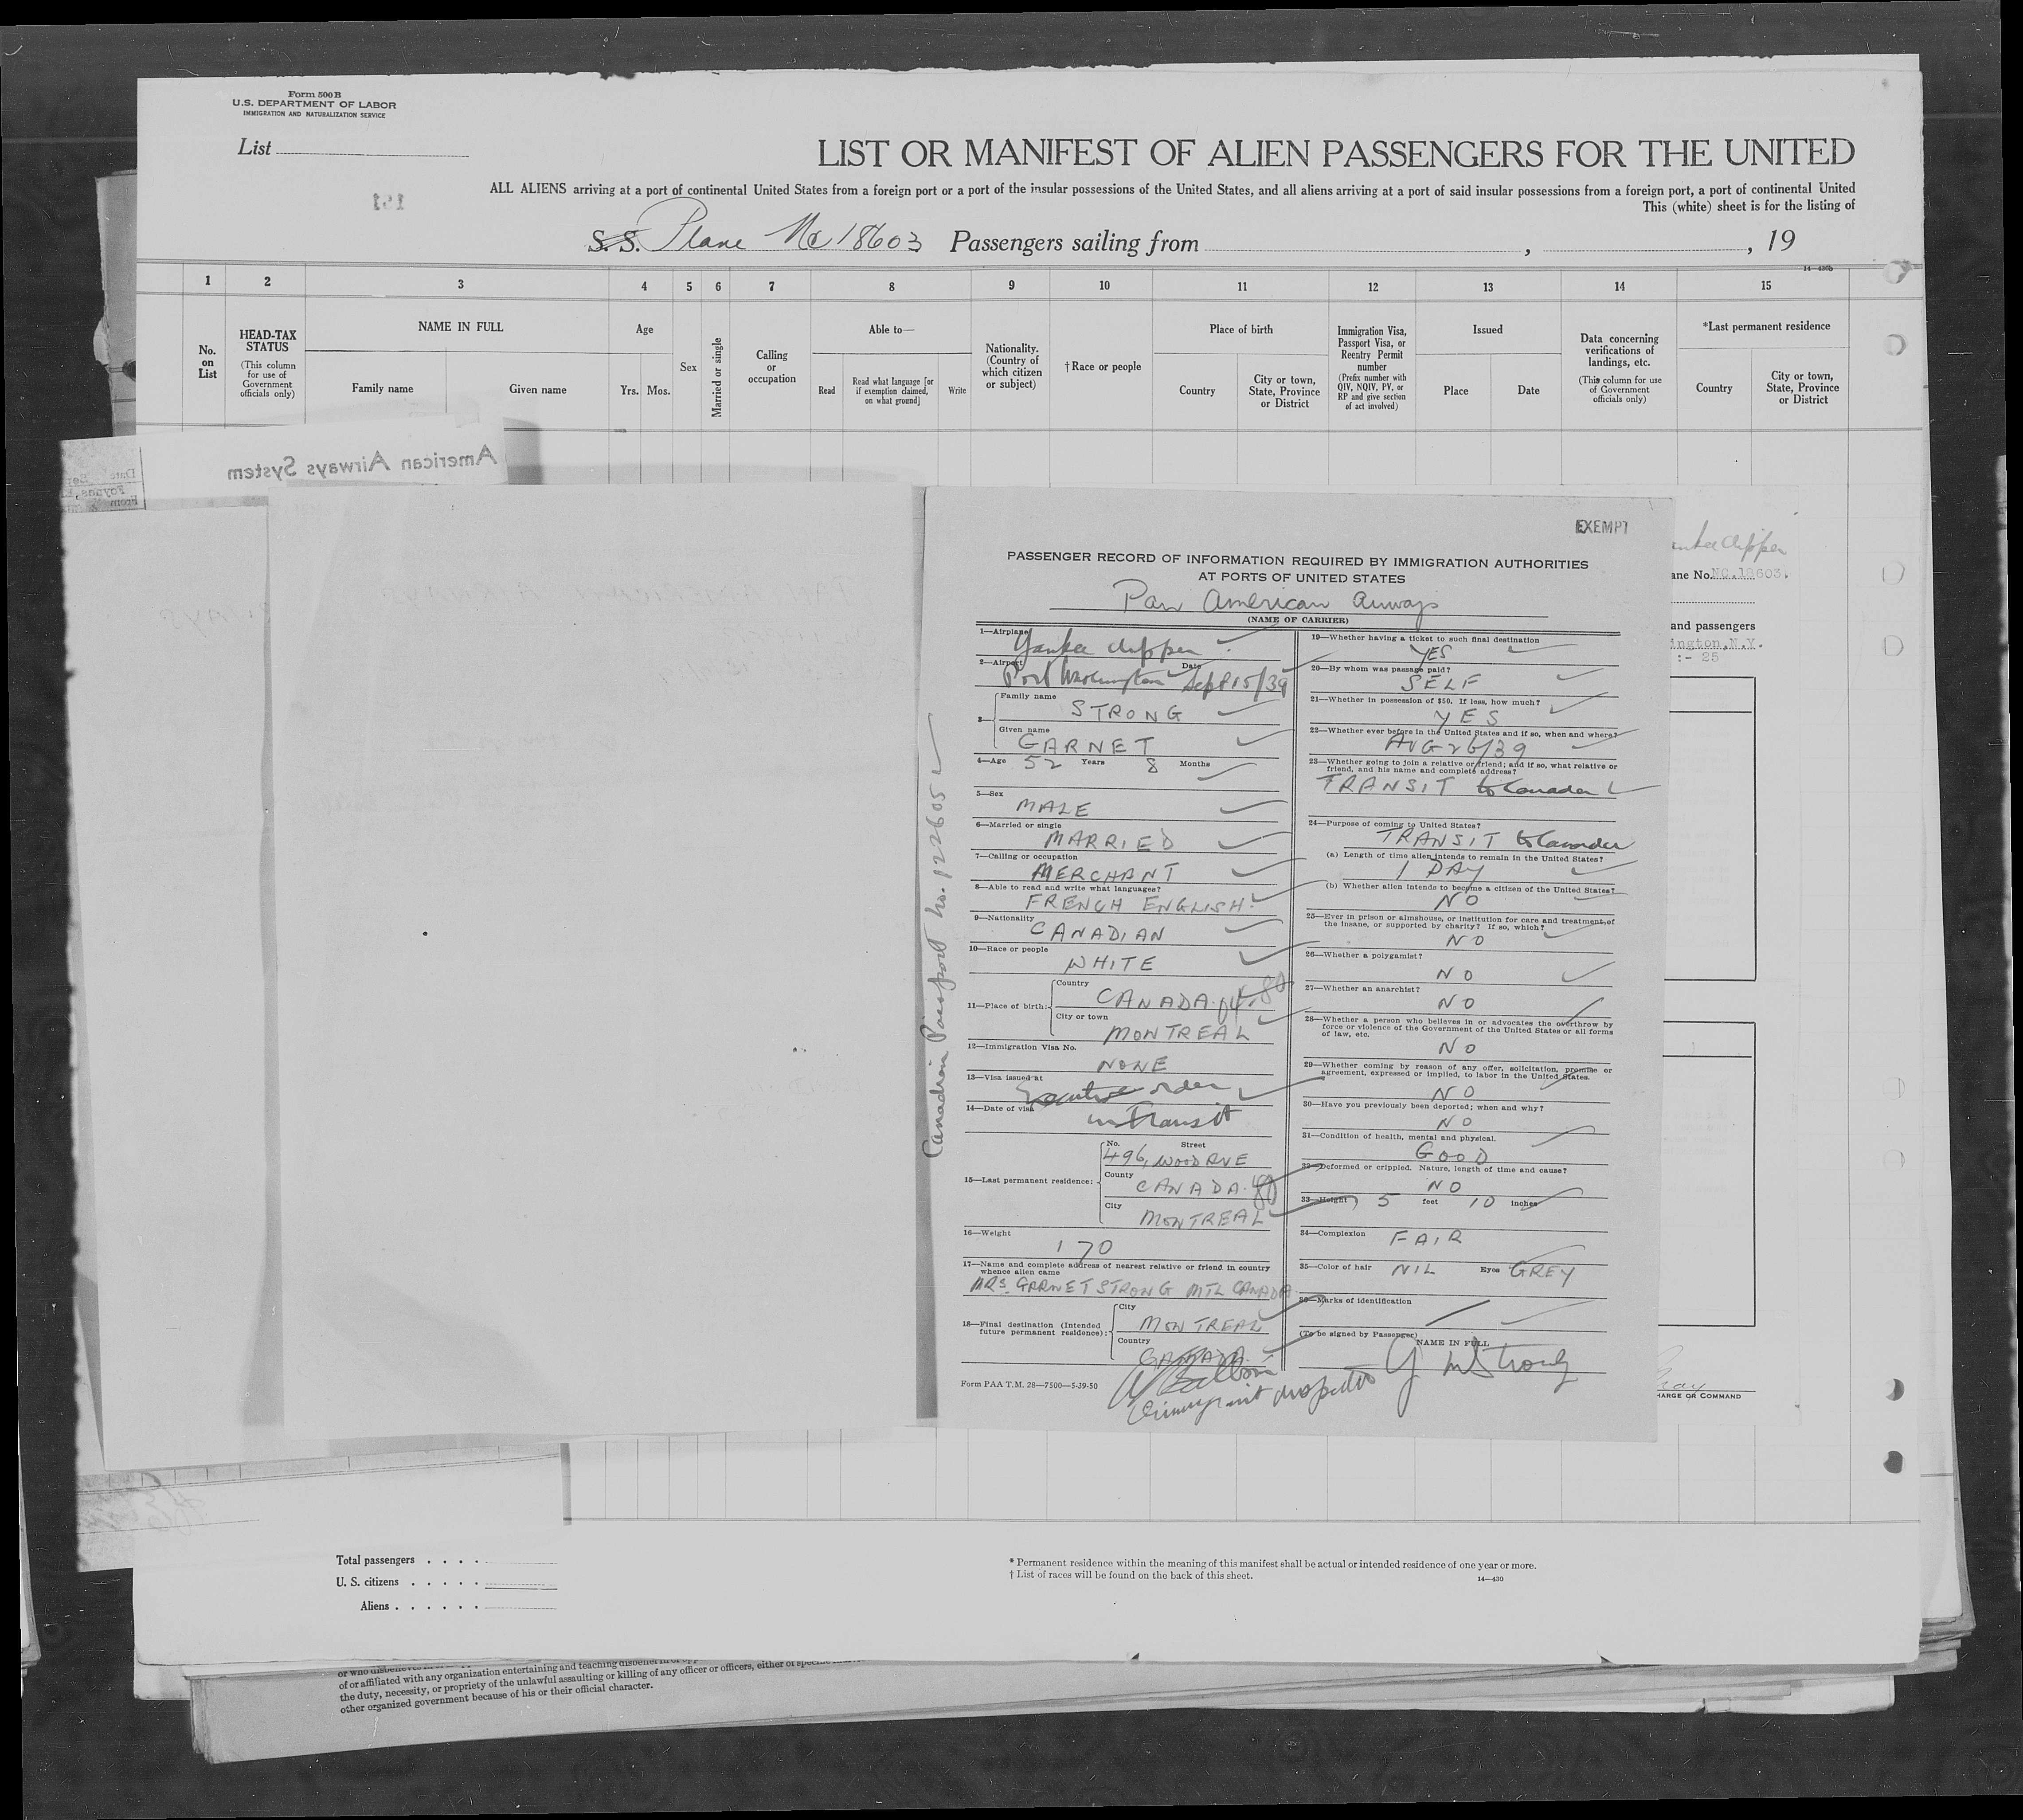 Form 500 B
U.S. DEPARTMENT OF LABOR
IMMIGRATION AND NATURALIZATION SERVICE
List
LIST OR MANIFEST OF ALIEN PASSENGERS FOR THE UNITED
ALL ALIENS arriving at a port of continental United States from a foreign port or a port of the insular possessions of the United States, and all aliens arriving at a port of said insular possessions from a foreign port, a port of continental United
This (white) sheet is for the listing of
191
S.S. Plane Nc 18603 Passengers sailing from , , 19
14—430b
1 2 3 4 5 6 7 8 9 10 11 12 13 14 15
No. on List
HEAD-TAX STATUS
(This column for use of Government officials only)
NAME IN FULL
Family name Given name
Age
Yrs. Mos.
Sex
Married or single
Calling or occupation
Able to—
Read
Read what language [or if exemption claimed, on what ground]
Write
Nationality. (Country of which citizen or subject)
† Race or people
Place of birth
Country
City or town, State, Province or District
Immigration Visa, Passport Visa, or Reentry Permit number
(Prefix number with QIV, NQIV, PV, or RP and give section of act involved)
Issued
Place Date
Data concerning verifications of landings, etc.
(This column for use of Government officials only)
*Last permanent residence
Country
City or town, State, Province or District
American Airways System
Date Sep
Foynes,
From
EXEMPT
PASSENGER RECORD OF INFORMATION REQUIRED BY IMMIGRATION AUTHORITIES
AT PORTS OF UNITED STATES
Pan American Airways
(NAME OF CARRIER)
1—Airplane Yankee Clipper
2—Airport Port Washington Date Sept 15/39
3— Family name STRONG
Given name GARNET
4—Age 52 Years 8 Months
5—Sex MALE
6—Married or single MARRIED
7—Calling or occupation MERCHANT
8—Able to read and write what languages?
FRENCH ENGLISH
9—Nationality CANADIAN
10—Race or people WHITE
11—Place of birth: Country CANADA
City or town MONTREAL
12—Immigration Visa No. NONE
13—Visa issued at Executive order
14—Date of visa in Transit
15—Last permanent residence: No. Street
496, WOOD AVE
County CANADA. 80
City MONTREAL
16—Weight 170
17—Name and complete address of nearest relative or friend in country whence alien came
MRS. GARNET STRONG MTL CANADA
18—Final destination (Intended future permanent residence): City MONTREAL
Country CANADA
Form PAA T.M. 28—7500—5-39-50
Immigrant Inspector
Canadian Passport No. 122605
19—Whether having a ticket to such final destination
YES
20—By whom was passage paid?
SELF
21—Whether in possession of $50. If less, how much?
YES
22—Whether ever before in the United States and if so, when and where?
AUG 26/39
23—Whether going to join a relative or friend; and if so, what relative or friend, and his name and complete address?
TRANSIT to Canada
24—Purpose of coming to United States?
TRANSIT to Canada
(a) Length of time alien intends to remain in the United States?
1 DAY
(b) Whether alien intends to become a citizen of the United States?
NO
25—Ever in prison or almshouse, or institution for care and treatment of the insane, or supported by charity? If so, which?
NO
26—Whether a polygamist?
NO
27—Whether an anarchist?
NO
28—Whether a person who believes in or advocates the overthrow by force or violence of the Government of the United States or all forms of law, etc.
NO
29—Whether coming by reason of any offer, solicitation, promise or agreement, expressed or implied, to labor in the United States.
NO
30—Have you previously been deported; when and why?
NO
31—Condition of health, mental and physical.
GOOD
32—Deformed or crippled. Nature, length of time and cause?
NO
33—Height 5 feet 10 inches
34—Complexion FAIR
35—Color of hair NIL Eyes GREY
36—Marks of identification
(To be signed by Passenger)
NAME IN FULL
ankee Clipper
ane No. NC.18603.
and passengers
ington, N.Y.
:- 25
Gray
HARGE OR COMMAND
Total passengers
U. S. citizens
Aliens
* Permanent residence within the meaning of this manifest shall be actual or intended residence of one year or more.
† List of races will be found on the back of this sheet.
14—430
of or affiliated with any organization entertaining and teaching
the duty, necessity, or propriety of the unlawful assaulting or killing of any officer or officers, either of
other organized government because of his or their official character.